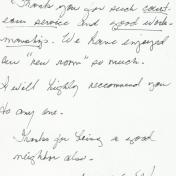 "Thank you for such court-
eous service and good work-
manship. We have enjoyed
our "new room" so much.
I will highly recommend you
to any one.
Thanks for being a good
neighbor also.